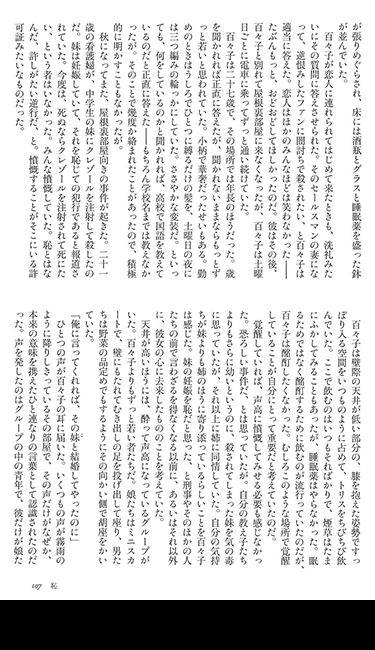 が張りめぐらされ、床には酒瓶とグラスと睡眠薬を盛った鉢
が並んでいた。
百々子が恋人に連れられてはじめて来たときも、洗礼みた
いにその質問に答えさせられた。そのセールスマンの妻にな
って、逆恨みしたファンに闇討ちで殺されたい、と百々子は
適当に答えた。恋人はほかのみんなほどは笑わなかった――
たぶんもっと、おどおどしてほしかったのだ。彼はその後、
百々子と別れて屋根裏部屋に来なくなったが、百々子は土曜
日ごとに電車に乗ってずっと通い続けている。
百々子は二十七歳で、その場所では年長のほうだった。歳
を聞かれれば正直に答えたが、聞かれないままならもっとず
っと若いと思われていた。小柄で華奢だったせいもある。勤
めのときはうしろでひとつに縛るだけの髪を、土曜日の夜に
は三つ編みの輪っかにしていた。ささやかな変装だ。といっ
ても、何をしているのかと聞かれれば、高校で国語を教えて
いるのだと正直に答えた――もちろん学校名までは教えなか
ったが。そのことで幾度か絡まれたことがあったので、積極
的に明かすこともなかったが。
秋になってまた、屋根裏部屋向きの事件が起きた。二十一
歳の看護婦が、中学生の妹にクレゾールを注射して殺したの
だ。妹は妊娠していて、それを恥じての犯行であると報道さ
れていた。今度は、死ぬならクレゾールを注射されて死にた
い、という者はいなかった。みんな憤慨していた。恥とはな
んだ、許しがたい逆行だ、と。憤慨することがそこにいる許
可証みたいなものだった。
百々子は壁際の天井が低い部分の、膝を抱えた姿勢ですっ
ぽり入る空間をいつものように占めて、トリスをちびちび飲
んでいた。ここで飲むのはいつもそればかりで、煙草はたま
にふかしてみることもあったが、睡眠薬はやらなかった。眠
るためではなく酩酊するために飲むのが流行っていたのだが、
百々子は酩酊したくなかった。むしろこのような場所で覚醒
していることが自分にとって重要だと考えていたのだ。
覚醒していれば、声高に憤慨してみせる必要も感じなかっ
た。恐ろしい事件だ、とは思っていたが。自分の教え子たち
よりもさらに幼いというのに、殺されてしまった妹を気の毒
に思っていたが、それ以上に姉に同情していた。自分の気持
ちが妹よりも姉のほうに寄り添っているらしいことを百々子
は感じた。妹の妊娠を恥だと思った、と刑事やそのほかの人
たちの前で言わざるを得なくなる以前に、あるいはそれ以外
に、彼女の心に去来したもののことを考えていた。
天井が高いほうには、酔って声高になっているグループが
いた。百々子よりもずっと若い者たちだ。娘たちはミニスカ
ートで、壁にもたれてむき出しの足を投げ出して座り、男た
ちは野菜の品定めでもするようにその向かい側で胡座をかい
ていた。
「俺に言ってくれれば、その妹と結婚してやったのに」
ひとつの声が百々子の耳に届いた。いくつもの声が霧雨の
ように降りしきっているその部屋で、その声だけがなぜか、
本来の意味を携えたひと連なりの言葉として認識されたのだ
った。声を発したのはグループの中の青年で、彼だけが娘た
107 恥